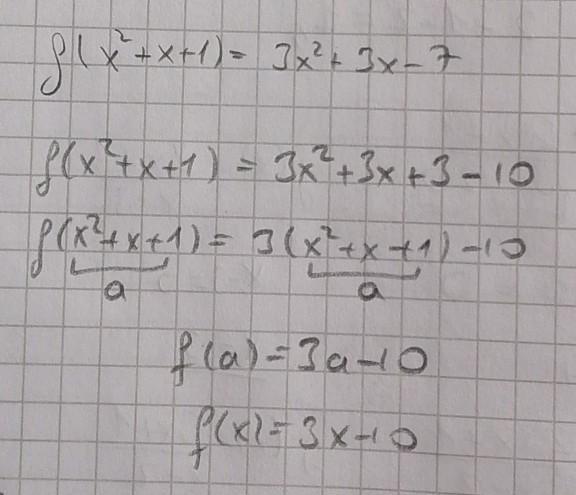 f(x²+x+1)= 3x²+3x-7
f(x²+x+1) = 3x²+3x+3-10
f(x²+x+1)= 3(x²+x+1)-10
a a
f(a)=3a-10
f(x)=3x-10